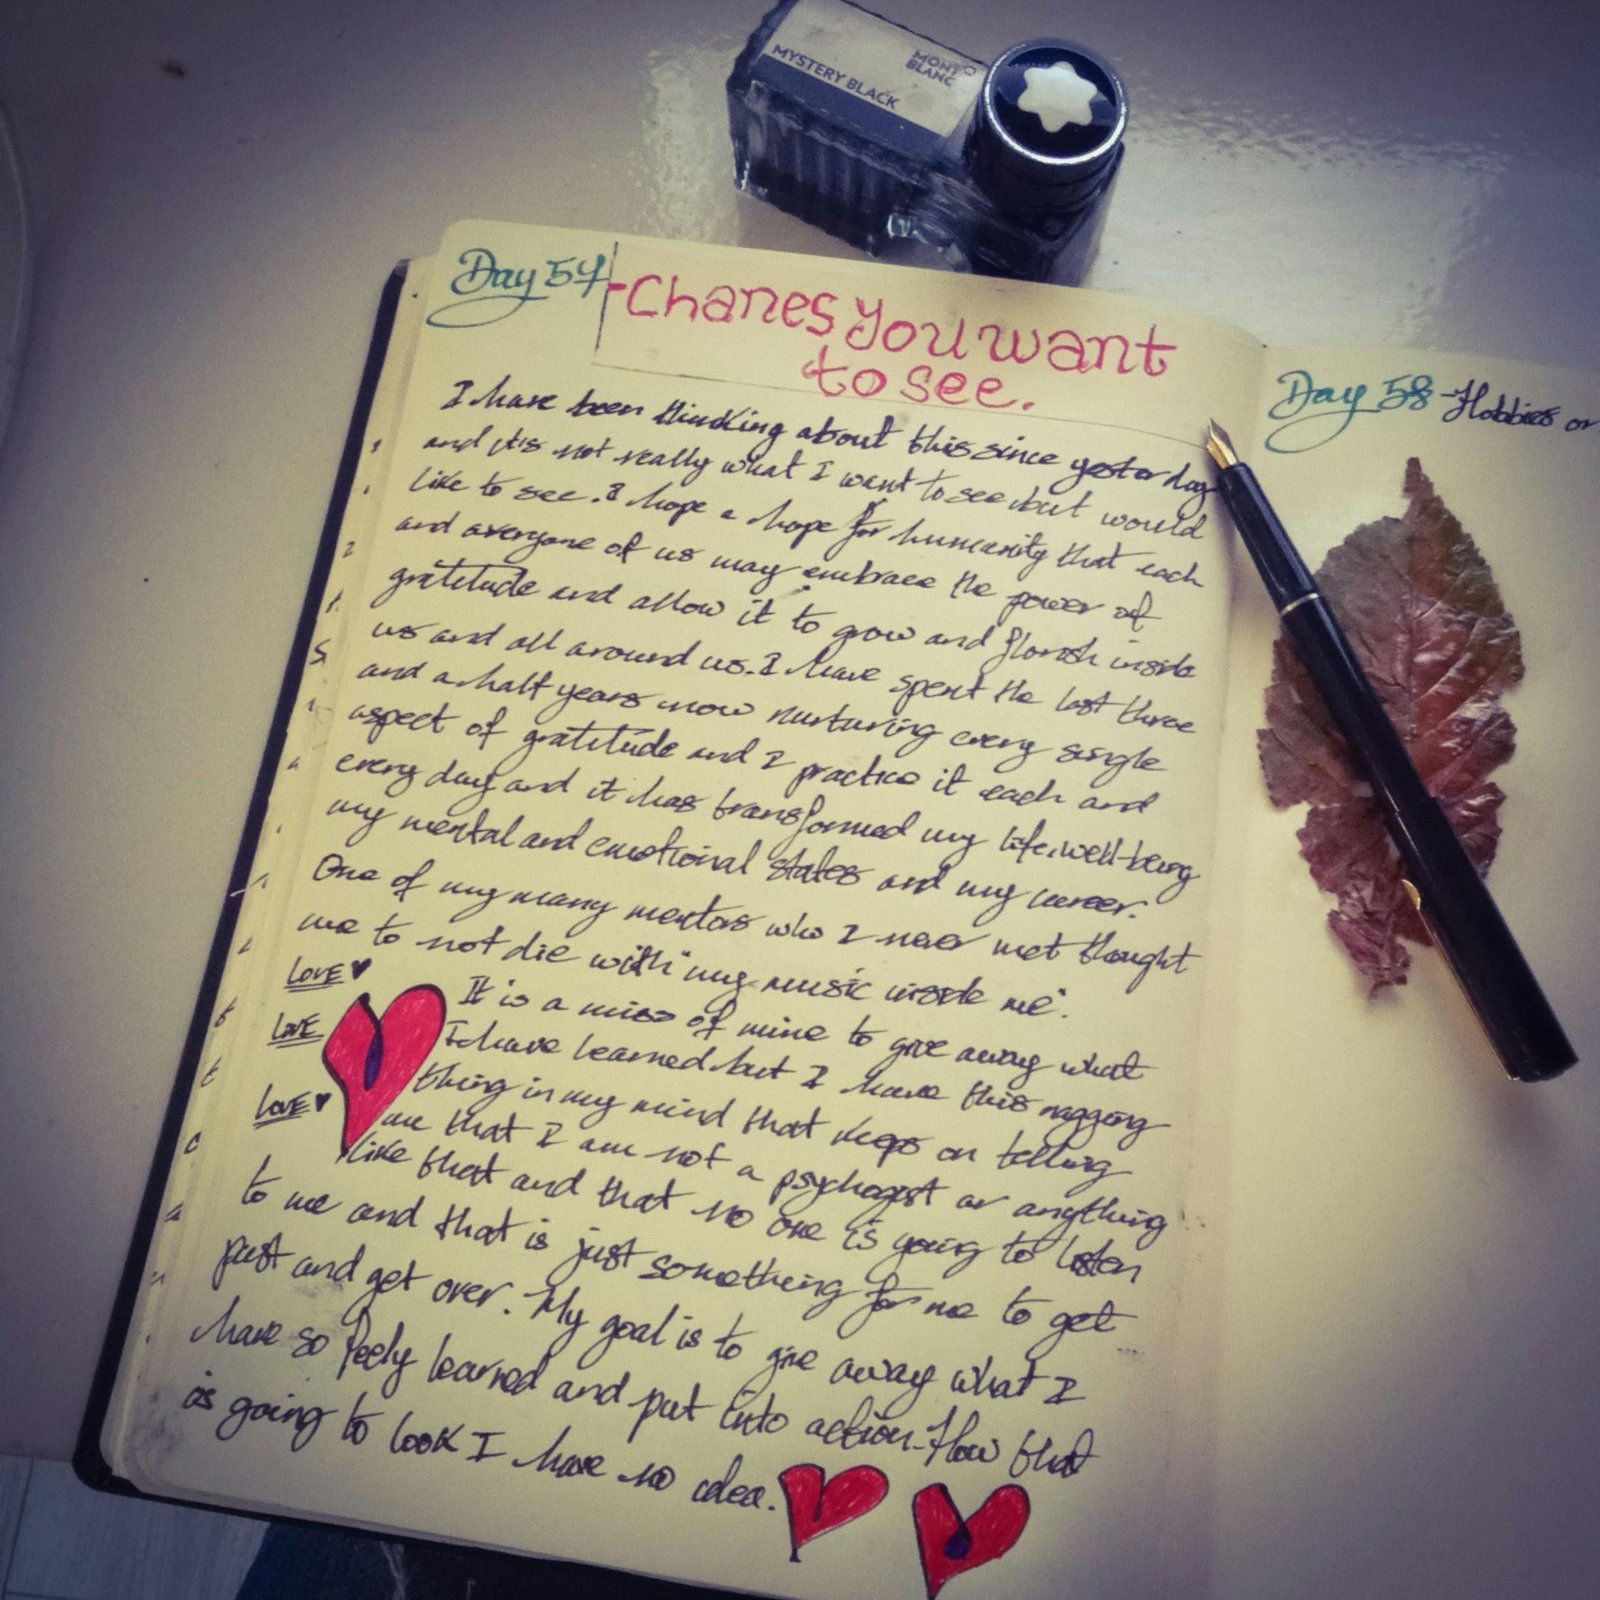 MYSTERY BLACK
MONT
BLANC
Day 57
-Chanes you want
to see.
I have been thinking about this since yesterday
and it's not really what I want to see but would
like to see. I hope a hope for humanity that each
and averyone of us may embrace the power of
gratetude and allow it to grow and florish inside
us and all around us. I have spent the last three
and a half years now nurturing every single
aspect of gratitude and I practice it each and
every day and it has transformed my life, well-being
my mental and emotional states and my career.
One of my many mentors who I never met thought
me to not die with "my music inside me".
LOVE ♥
It is a miss of mine to give away what
LOVE
I have learned but I have this nagging
thing in my mind that keeps on telling
LOVE ♥
me that I am not a psychogist or anything
like that and that no one is going to listen
to me and that is just something for me to get
past and get over. My goal is to give away what I
have so feely learned and put into action. How that
is going to look I have no idea.
Day 58 - Hobbies or